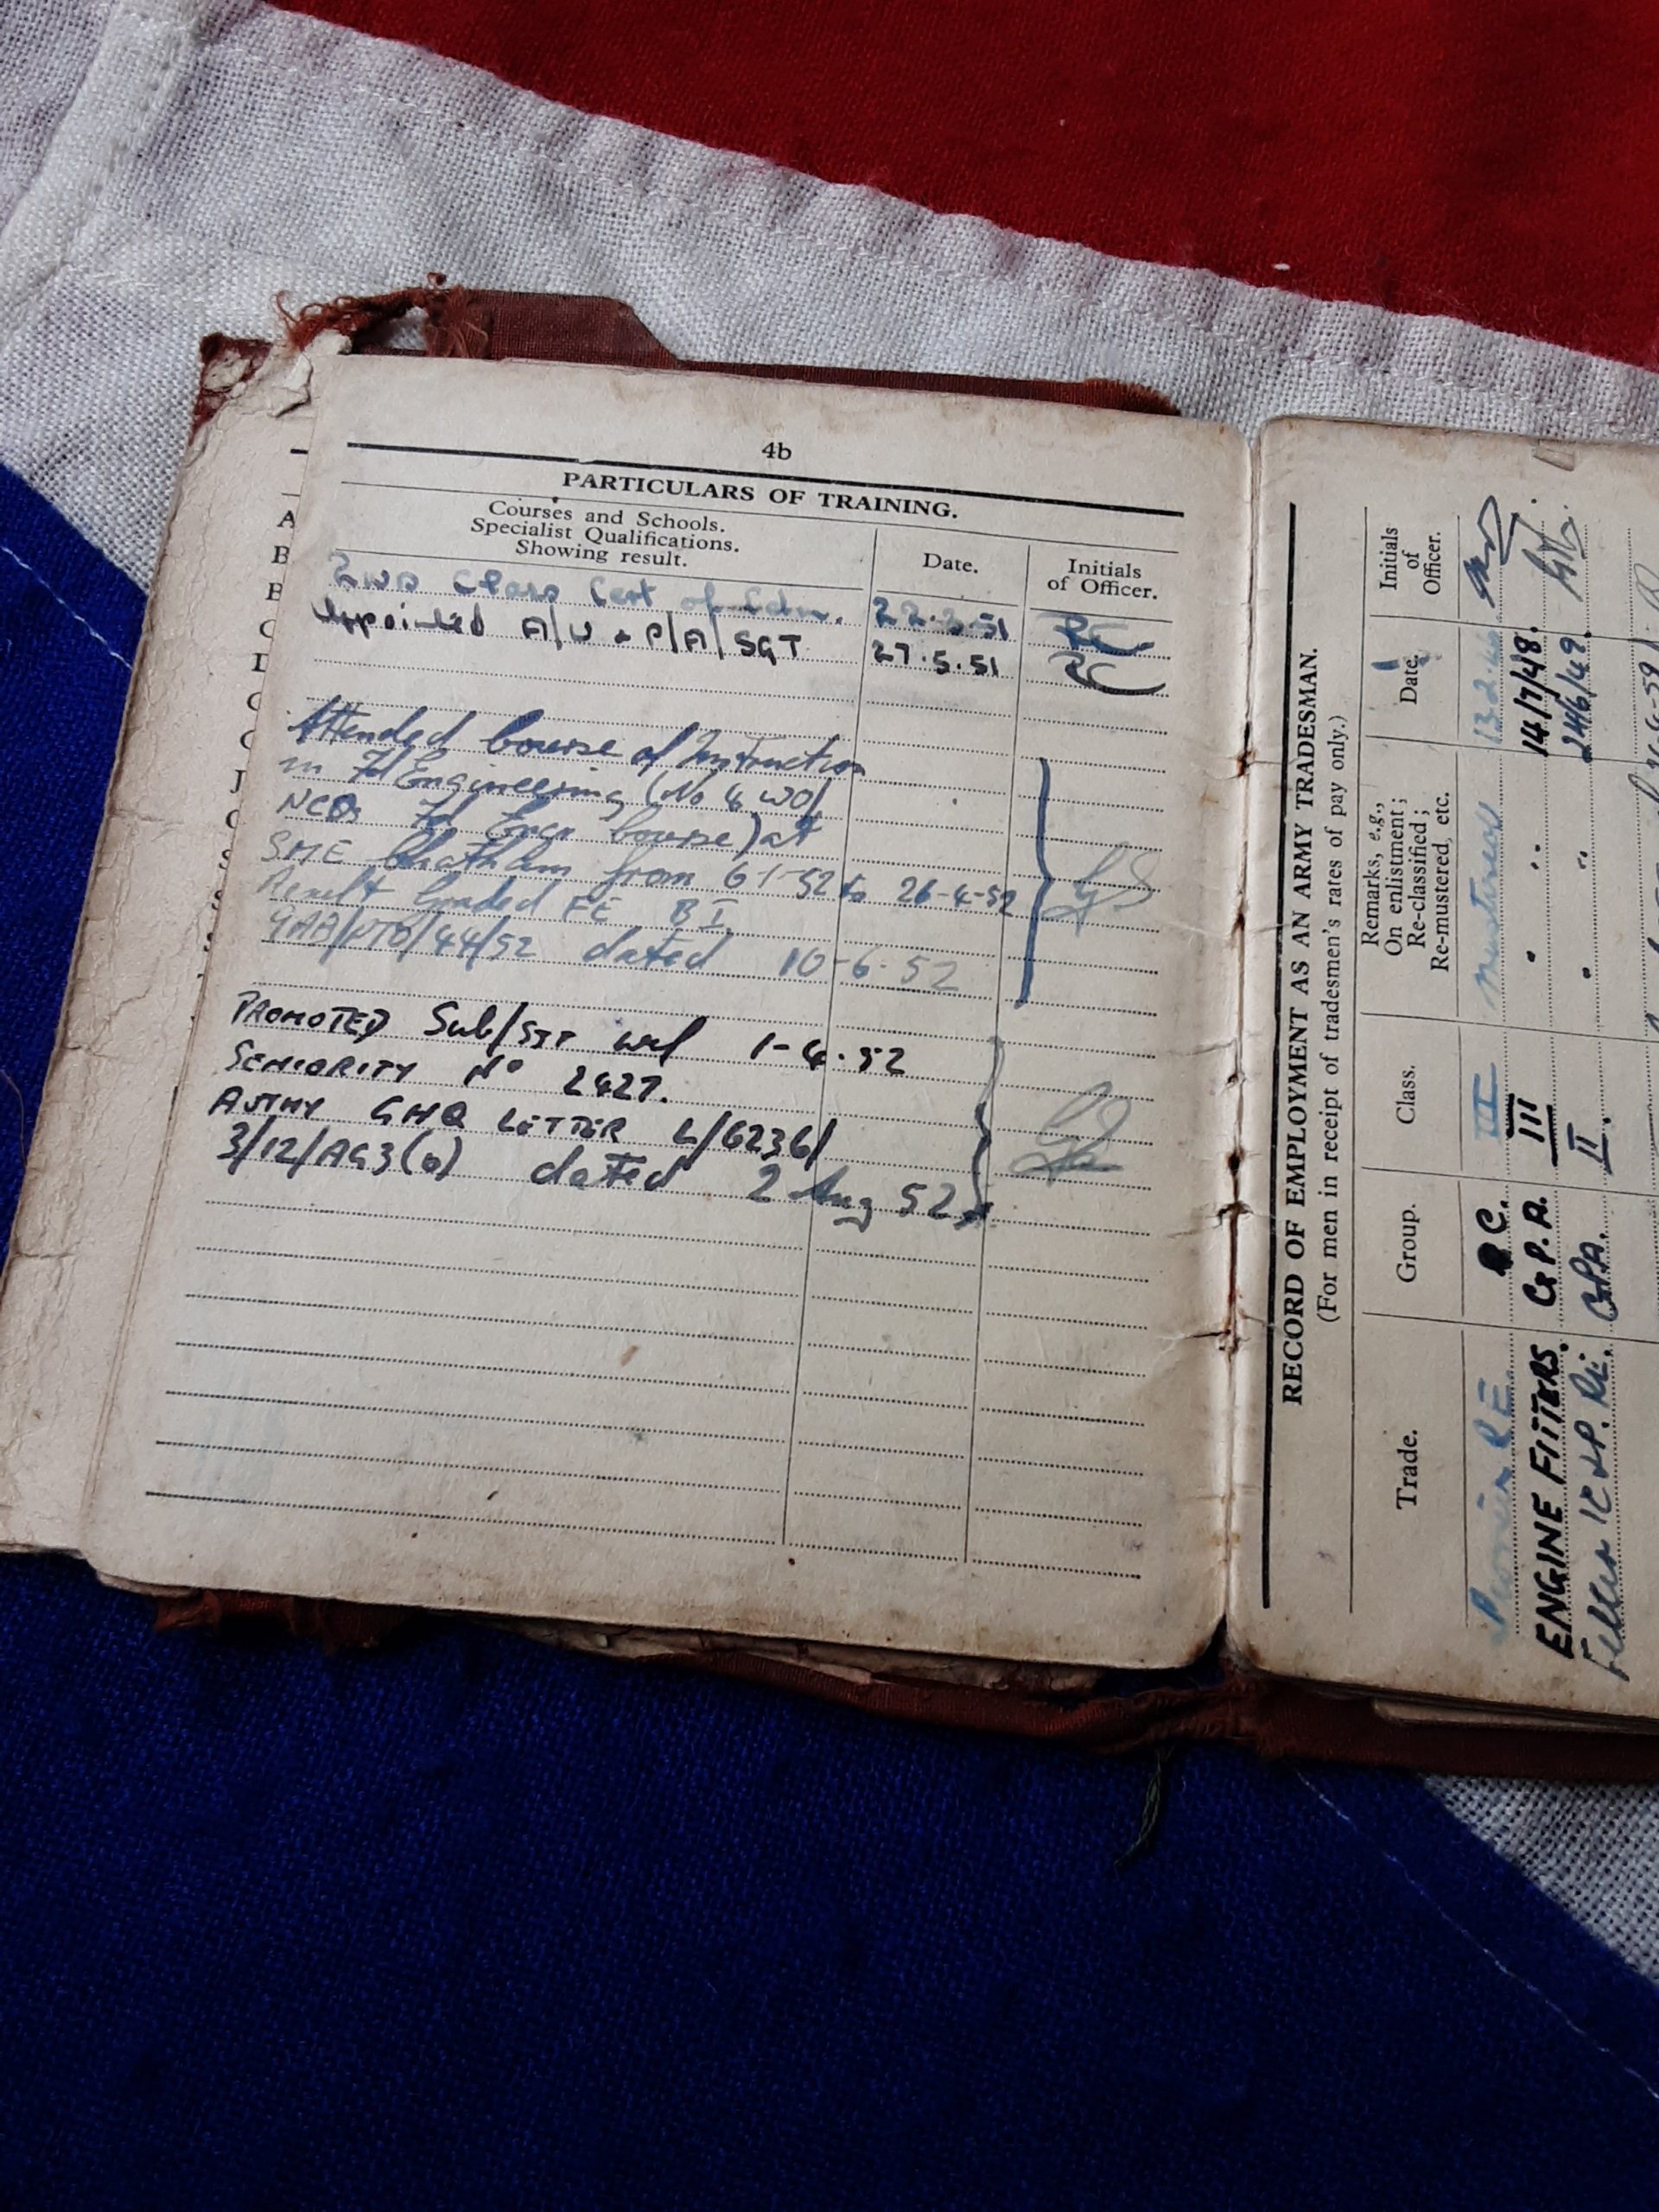 4b
PARTICULARS OF TRAINING.
Courses and Schools.
Specialist Qualifications.
Showing result.
Date.
Initials
of Officer.
2nd Class Cert of Edn. 22.3.51
Appointed A/U & P/A/SGT 27.5.51
Attended Course of Instruction
in Fd Engineering (No 4 WO/
NCOs Fd Engr Course) at
SME Chatham from 6-1-52 to 26-4-52
Result Graded FE BI.
44/52 dated 10-6-52
PROMOTED Sub/SGT wef 1-4-52
SENIORITY No 2427.
AUTHY GHQ LETTER L/6236/
3/12/AG3(b) dated 2 Aug 52
RECORD OF EMPLOYMENT AS AN ARMY TRADESMAN.
(For men in receipt of tradesmen's rates of pay only.)
Trade.
Group.
Class.
Remarks, e.g.,
On enlistment;
Re-classified;
Re-mustered, etc.
Date.
Initials
of
Officer.
Pioneer R.E. C. III mustered 13.2.46
ENGINE FITTERS. G.P.A. III " " 14/7/48.
Fitter IC & P. RE. GPA. II. " " 24/6/49.